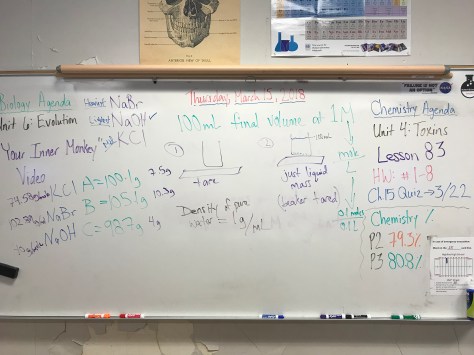 Thursday, March 15, 2018
Biology Agenda
Unit 6: Evolution
Your Inner Monkey
Video
Heaviest NaBr
Lightest NaOH ✓
KCl
KCl A = 100.1g 7.5g
NaBr B = 105.1g
NaOH C = 98.7g 4g
100mL final volume at 1M
① tare
② 100mL
just liquid
mass
(beaker tared)
Density of pure
water = 1g/mL
mol
L
0.1 moles
0.1 L
Chemistry Agenda
Unit 4: Toxins
Lesson 83
HW: #1-8
Ch15 Quiz → 3/22
Chemistry %
P2 79.3%
P3 80.8%
FAILURE IS NOT
AN OPTION
NASA